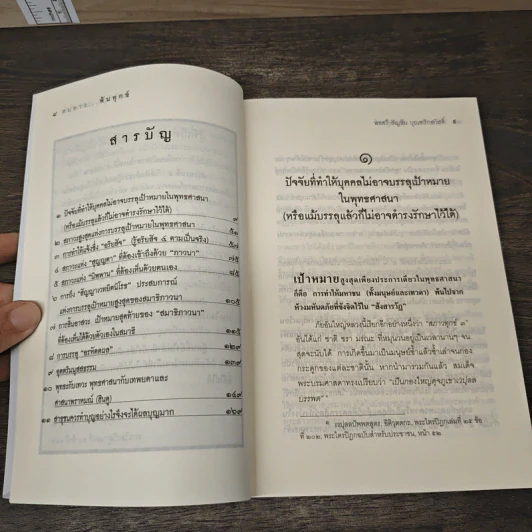 ๘ ... พ้นทุกข์
สารบัญ
๑ ปัจจัยที่ทำให้บุคคลไม่อาจบรรลุเป้าหมายในพุทธศาสนา
(หรือแม้บรรลุแล้วก็ไม่อาจดำรงรักษาไว้ได้) ๙
๒ สภาวะสูงสุดแห่งการบรรลุเป้าหมายในพุทธศาสนา ๕๑
๓ การทำให้แจ้งซึ่ง "อริยสัจ" (รู้อริยสัจ ๔ ตามเป็นจริง) ๕๗
๔ สภาวะแห่ง "สุญญตา" ที่ต้องเข้าถึงด้วย "ภาวนา" ๗๕
๕ สภาวะแห่ง "นิพพาน" ที่ต้องเห็นด้วยตนเอง ๘๕
๖ การถึง "สัญญาเวทยิตนิโรธ" ประสบการณ์
แห่งการบรรลุเป้าหมายสูงสุดของสมาธิภาวนา ๑๐๕
๗ การสิ้นอาสวะ เป้าหมายสุดท้ายของ "สมาธิภาวนา"
ที่ต้องเห็นได้ด้วยตัวเองในสมาธิ ๑๑๕
๘ การบรรลุ "อรหัตตผล" ๑๒๙
๙ อุตตริมนุสสธรรม ๑๓๙
๑๐ พุทธกับเทวะ พุทธศาสนากับเทพยดาและ
ศาสนาพราหมณ์ (ฮินดู) ๑๔๙
๑๑ สาธุชนควรทำบุญอย่างไรจึงจะได้ผลบุญมาก ๑๖๙
๑
ปัจจัยที่ทำให้บุคคลไม่อาจบรรลุเป้าหมาย
ในพุทธศาสนา
(หรือแม้บรรลุแล้วก็ไม่อาจดำรงรักษาไว้ได้)
เป้าหมายสูงสุดเพียงประการเดียวในพุทธศาสนา
ก็คือ การทำให้มหาชน (ทั้งมนุษย์และเทวดา) พ้นไปจาก
ห้วงมหันตภัยที่ขังจิตไว้ใน "สังสารวัฏ"
ภัยอันใหญ่หลวงนี้เรียกอีกอย่างหนึ่งว่า "สภาวทุกข์ ๓"
อันได้แก่ ชาติ ชรา มรณะ ที่หมุนวนอยู่เป็นเวลานานๆ จน
สุดจะนับได้ การเกิดขึ้นมาเป็นมนุษย์ซ้ำแล้วซ้ำเล่าจนกอง
กระดูกของแต่ละชาตินั้น หากนำมารวมกันแล้ว สมเด็จ
พระบรมศาสดาทรงเปรียบว่า "เป็นกองใหญ่ดุจภูเขาเวปุลล
บรรพต"
เวปุลลปัพพตสูตร, อิติวุตตกะ, พระไตรปิฎกเล่มที่ ๒๕ ข้อ
ที่ ๒๐๒, พระไตรปิฎกฉบับสำหรับประชาชน, หน้า